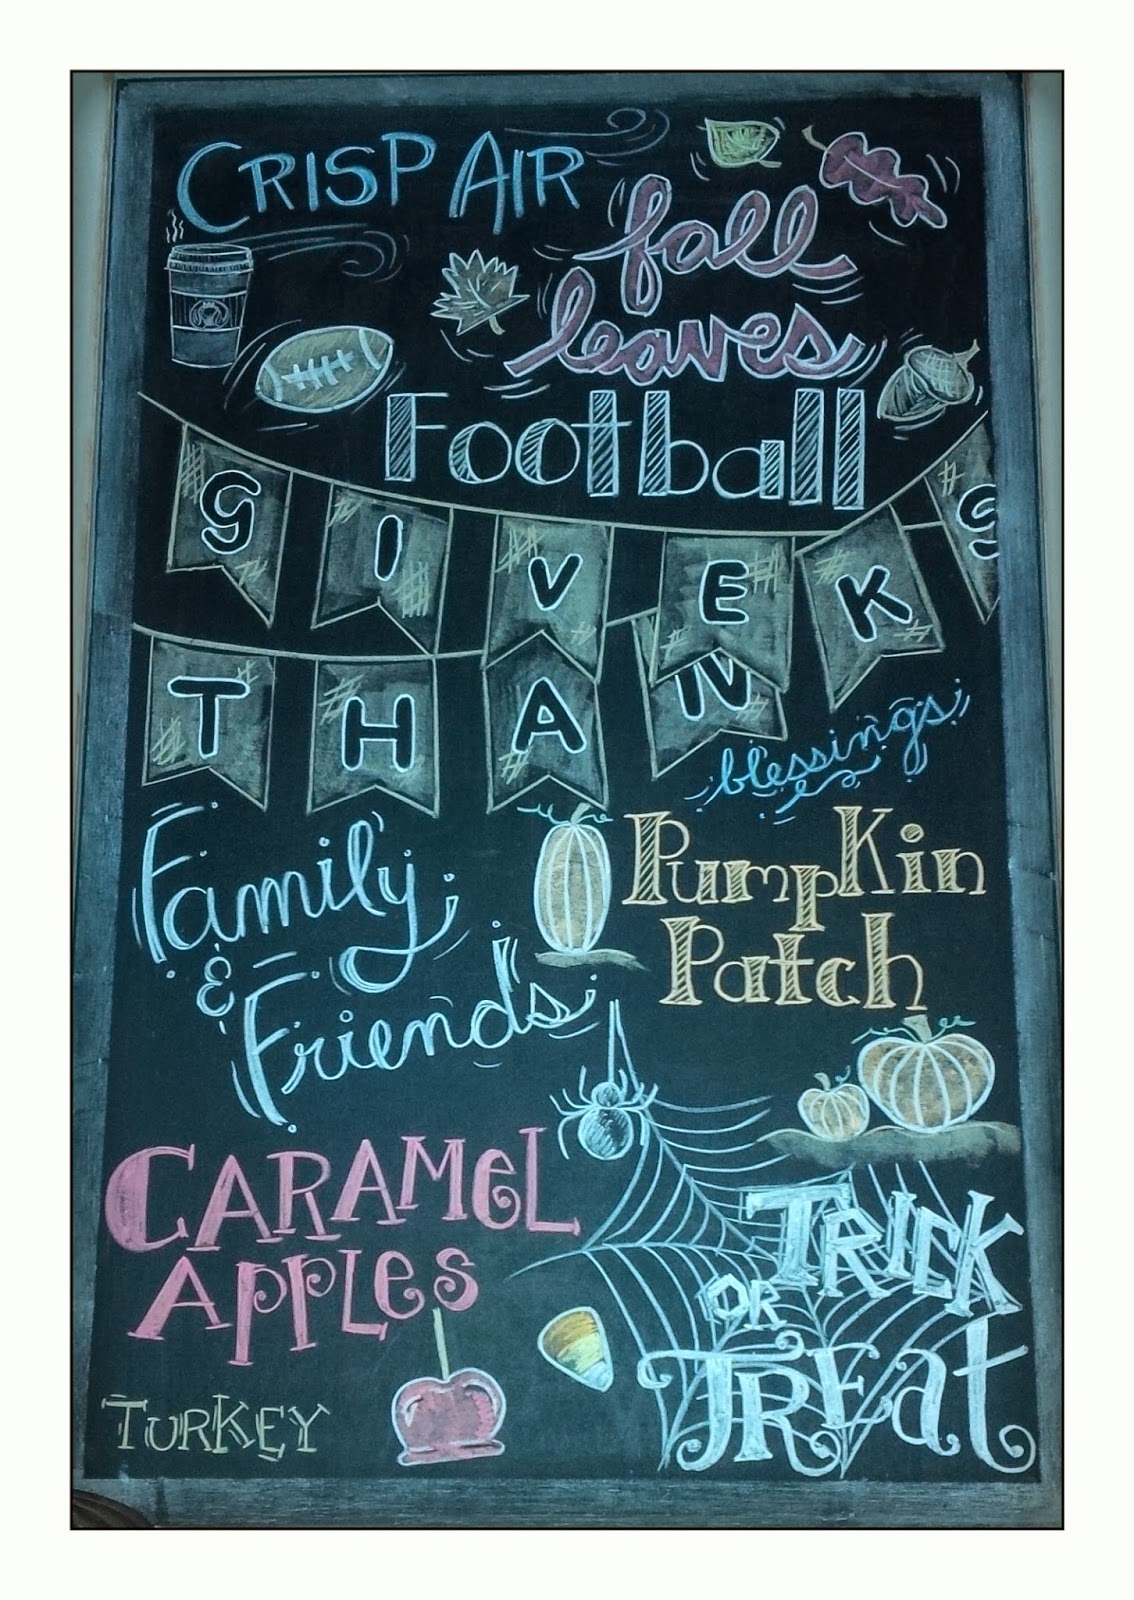 CRISP AIR
fall
leaves
Football
GIVE
THANKS
blessings
Family
&
Friends
PumpKin
Patch
CARAMeL
APPLeS
TRICK
OR
TREat
TURKEY